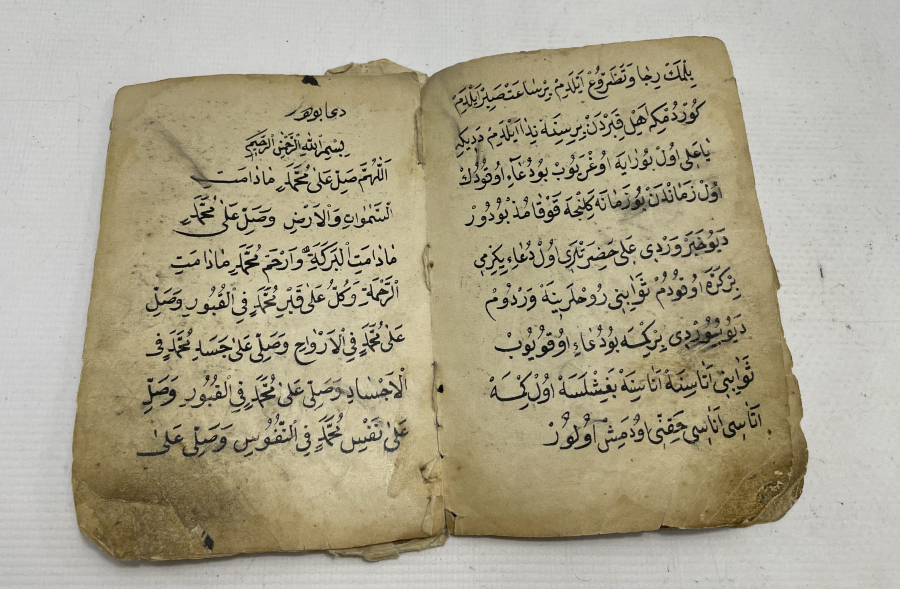 بِلمَكْ رِجَا وَتَضَرُّوعْ اَيْلَدِمْ بِرْ سَاعَتْ صَبِرْ اَيْلَدِمْ
كُورْدُمْكِه اَهْلِ قَبِرْدَنْ بِرِسِنَه نِدَا اَيْلَدِمْ دَدِيكِه
يَا عَلِى اُولْ بُورَايَه اُوغْرَيُوبْ بُو دُعَاءِ اُوقُودُكْ
اُولْ زَمَانْدَنْ بُو زَمَانَه كَلِنْجَه قَوْقَامُذْ بُودُورْ
دَيُو خَبَرْ وَرْدِى عَلِى حَضِرَتْلَرِى اُولْ دُعَاءِ يِكِرْمِى
بِرْ كَرَّه اُوقُودُمْ ثَوَابِنِى رُوحْلَرِينَه وَرْدُومْ
دَيُو بُيُورْدِى بِرْ كِمْسَه بُو دُعَاءِ اُوقُويُوبْ
ثَوَابِنِى اَتَاسِنَه اَنَاسِنَه بَغِشْلَسَه اُولْ كِمْسَه
اَتَاسِى اَنَاسِى حَقِنِى اُودَمِشْ اُولُورْ
دعا بودر
بِسْمِ اللهِ الرَّحْمٰنِ الرَّحِيمِ
اَللّٰهُمَّ صَلِّ عَلٰى مُحَمَّدٍ مَادَامَتِ
السَّمٰوَاتِ وَالْاَرْضِ وَصَلِّ عَلٰى مُحَمَّدٍ
مَادَامَتِ الْبَرَكَةِ وَارْحَمْ مُحَمَّدٍ مَادَامَتِ
الرَّحْمَةِ وَكُلُّ عَلٰى قَبْرِ مُحَمَّدٍ فِى الْقُبُورِ وَصَلِّ
عَلٰى مُحَمَّدٍ فِى الْاَرْوَاحِ وَصَلِّى عَلٰى جَسَدِ مُحَمَّدٍ فِى
الْاَجْسَادِ وَصَلِّى عَلٰى مُحَمَّدٍ فِى الْقُبُورِ وَصَلِّ
عَلٰى نَفْسِ مُحَمَّدٍ فِى النُّفُوسِ وَصَلِّى عَلٰى